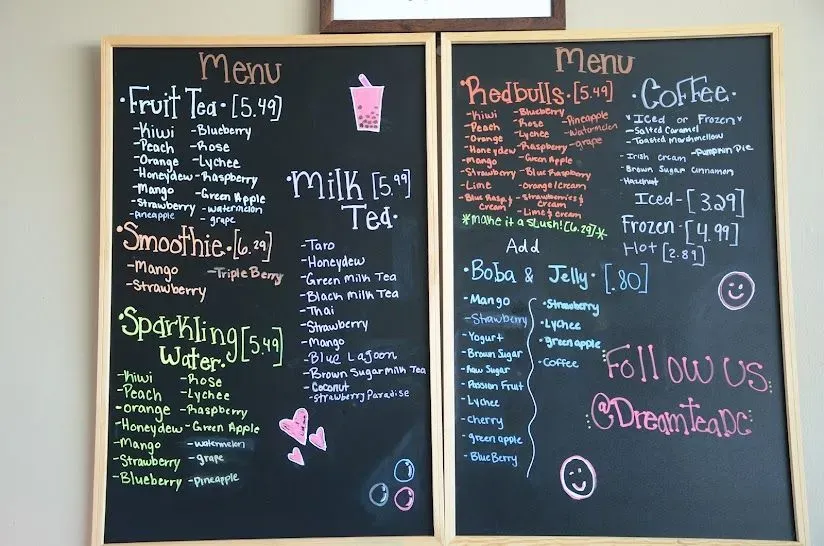 Menu
Fruit Tea. [5.49]
-Kiwi -Blueberry
-Peach -Rose
-Orange -Lychee
-Honeydew -Raspberry
-Mango -Green Apple
-Strawberry -watermelon
-pineapple -grape
Smoothie. [6.29]
-Mango -Triple Berry
-Strawberry
Sparkling [5.49]
Water.
-Kiwi -Rose
-Peach -Lychee
-orange -Raspberry
-Honeydew -Green Apple
-Mango -watermelon
-Strawberry -grape
-Blueberry -Pineapple
Milk [5.99]
Tea.
-Taro
-Honeydew
-Green milk Tea
-Black milk Tea
-Thai
-Strawberry
-Mango
-Blue Lagoon
-Brown Sugar milk Tea
-Coconut
-Strawberry Paradise
Menu
Redbulls. [5.49]
-Kiwi -Blueberry -Pineapple
-Peach -Rose -watermelon
-Orange -Lychee -grape
-Honeydew -Raspberry
-Mango -Green Apple
-Strawberry -Blue Raspberry
-Lime -orange/cream
-Blue Rasp & cream -strawberries & cream
-Lime & cream
*make it a slush! [6.29]*
Add
Boba & Jelly. [.80]
-Mango -Strawberry
-Strawberry -Lychee
-Yogurt -green apple
-Brown Sugar -Coffee
-Raw Sugar
-Passion Fruit
-Lychee
-Cherry
-green apple
-BlueBerry
Coffee.
"Iced or Frozen"
-Salted Caramel
-Toasted Marshmellow
-Irish cream -Pumpkin Pie
-Brown Sugar Cinnamon
-Hazelnut
Iced-[3.29]
Frozen-[4.99]
Hot [2.89]
Follow us:
@DreamteaDC